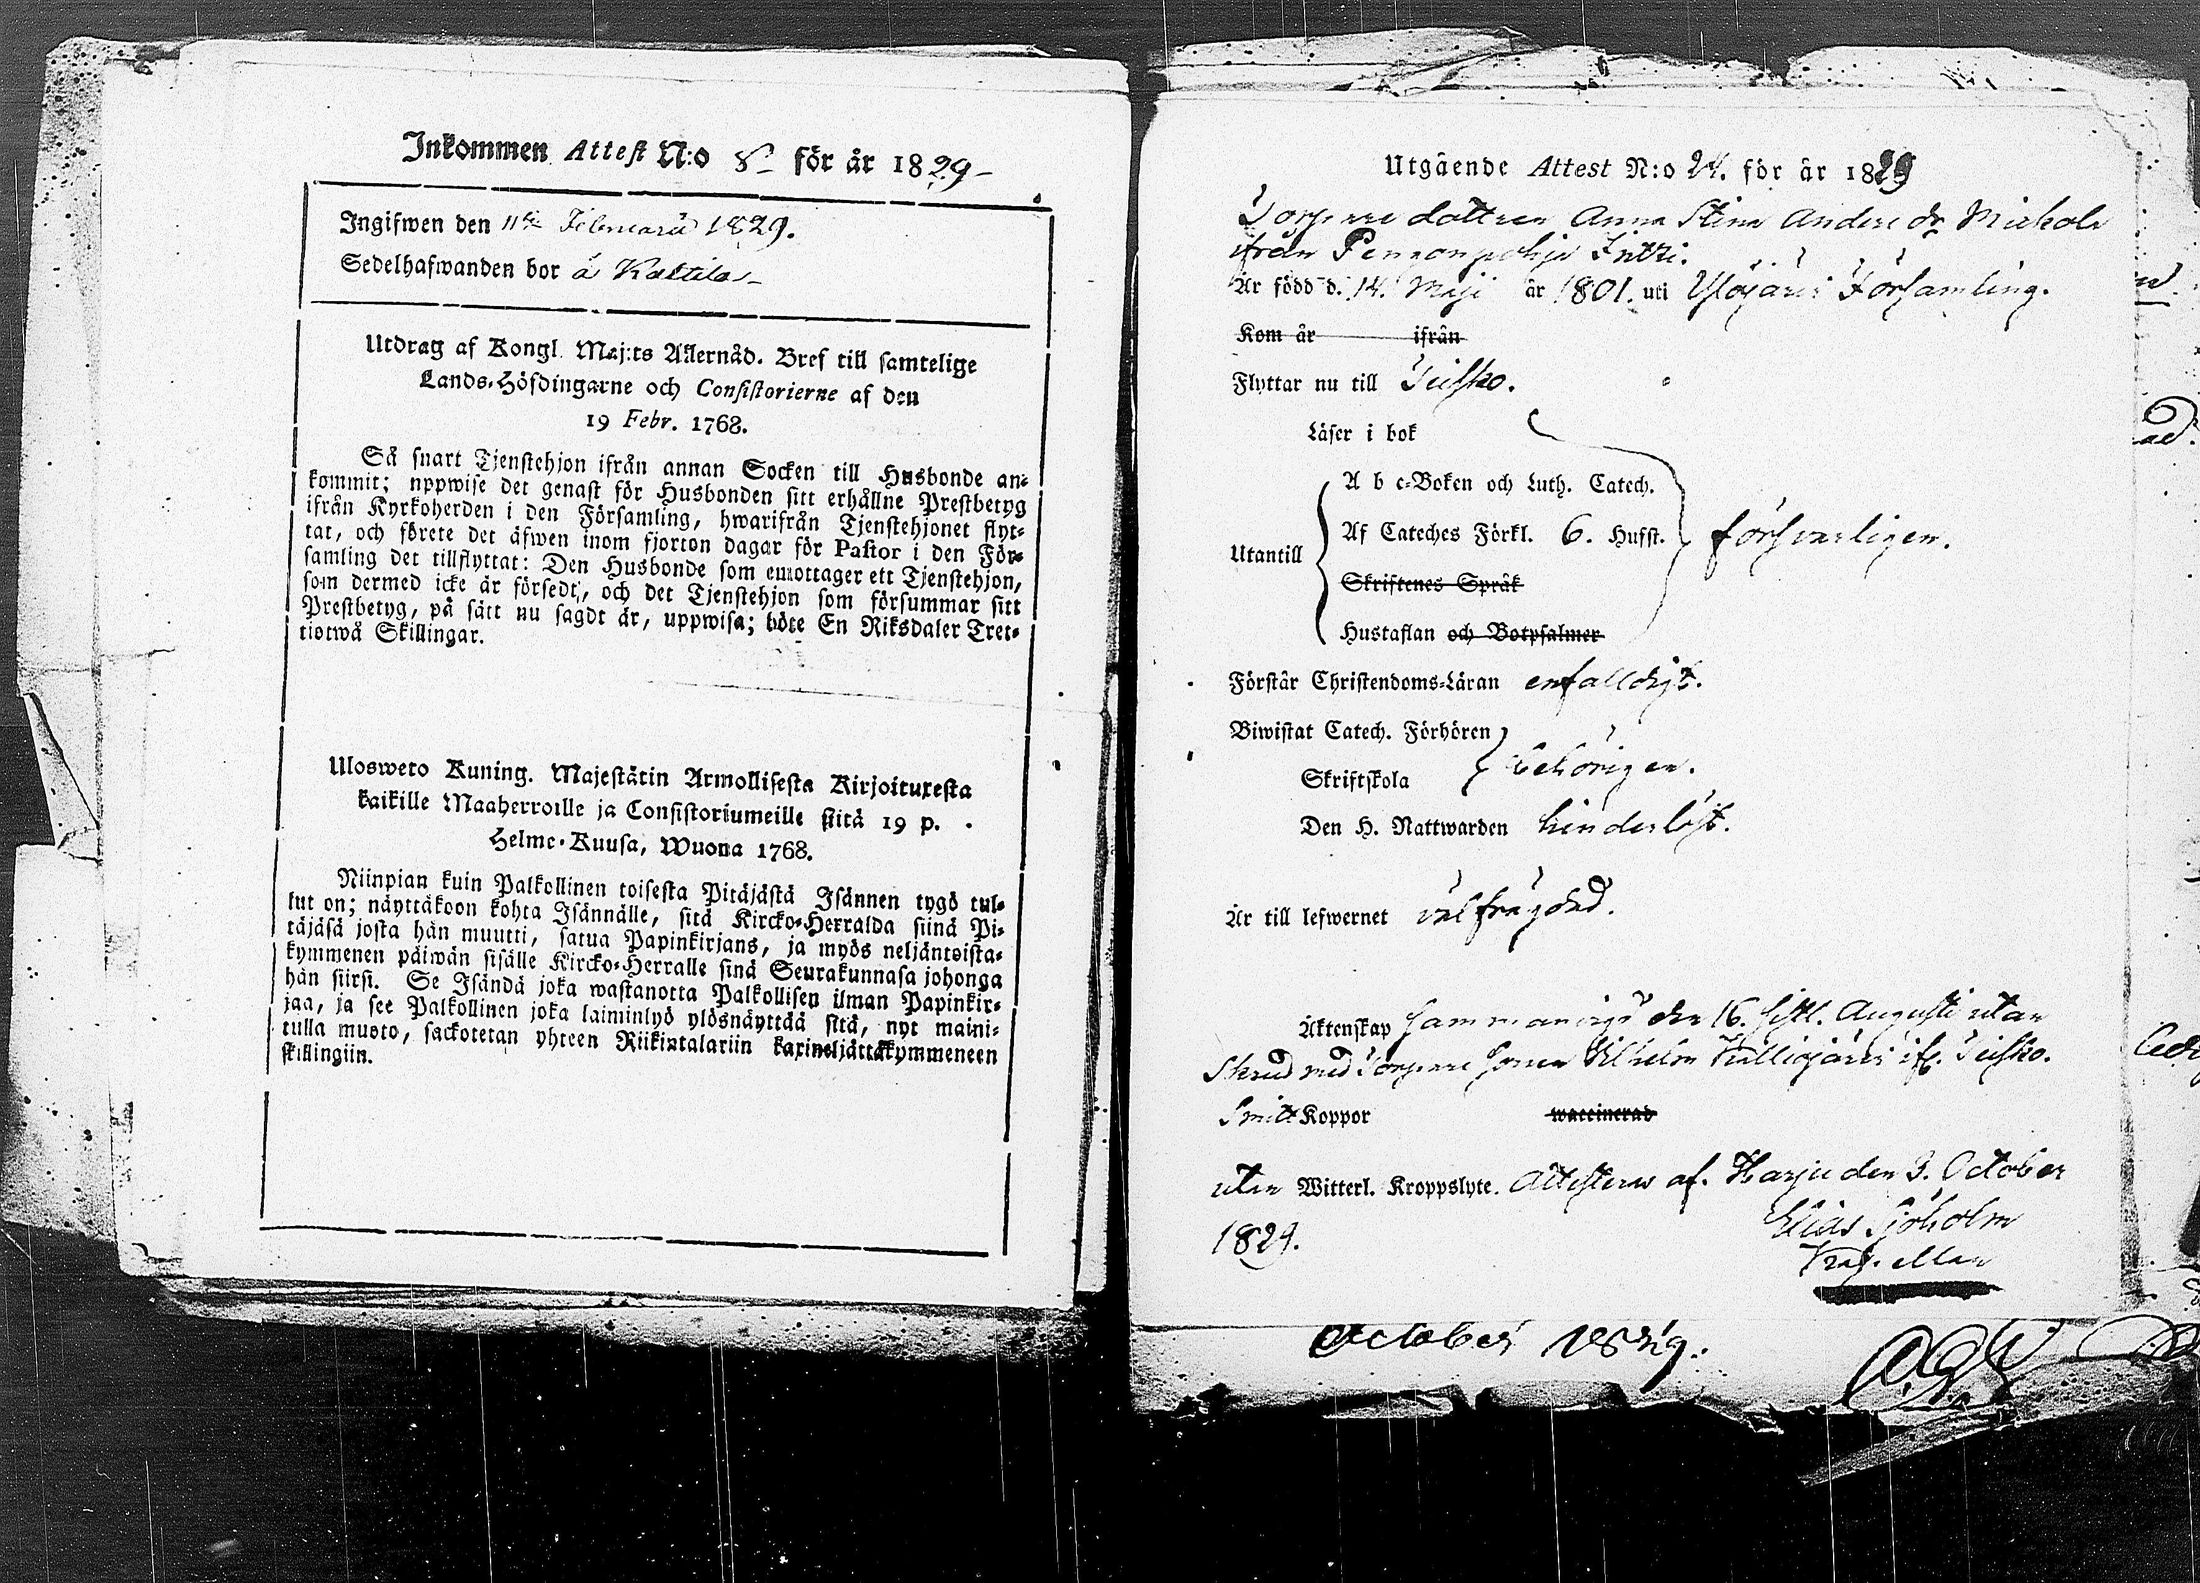 Inkommen Attest N:o 8 för år 1829
Ingifwen den 11te Februarii 1829.
Sedelhafwanden bor å Kaltila
Utdrag af Kongl. Maj:ts Allernåd. Bref till samtelige
Lands-Höfdingarne och Consistorierne af den
19 Febr. 1768.
Så snart Tjenstehjon ifrån annan Socken till Husbonde an-
kommit; uppwise det genast för Husbonden sitt erhållne Prestbetyg
ifrån Kyrkoherden i den Församling, hwarifrån Tjenstehjonet flyt-
tat, och förete det äfwen inom fjorton dagar för Pastor i den För-
samling det tillflyttat: Den Husbonde som emottager ett Tjenstehjon,
som dermed icke är försedt, och det Tjenstehjon som försummar sitt
Prestbetyg, på sätt nu sagdt är, uppwisa; böte En Riksdaler Tret-
tiotwå Skillingar.
Ulosweto Kuning. Majestätin Armollisesta Kirjoituxesta
kaikille Maaherroille ja Consistoriumeille siitä 19 p.
Helme-Kuusa, Wuona 1768.
Niinpian kuin Palkollinen toisesta Pitäjästä Isännen tygö tul-
lut on; näyttäkoon kohta Isännälle, sitä Kircko-Herralda siinä Pi-
täjäsä josta hän muutti, satua Papinkirjans, ja myös neljäntoista-
kymmenen päiwän sisälle Kircko-Herralle sinä Seurakunnasa johonga
hän siirsi. Se Isändä joka wastanotta Palkollisen ilman Papinkir-
jaa, ja see Palkollinen joka laiminlyö ylösnäyttää sitä, nyt maini-
tulla muoto, sackotetan yhteen Riikintalariin kaxineljättäkymmeneen
skillingiin.
Utgående Attest N:o 24. för år 1829
Torpare dottren Anna Stina Anders dr Mickola
ifrån Penzonpohja Inttri.
Är född d. 14. Maji år 1801. uti Ylöjärvi Församling.
Kom år ifrån
Flyttar nu till Teisko.
Läser i bok
A b c-Boken och Luth. Catech.
Utantill Af Cateches Förkl. 6. Hufst. försvarligen.
Skriftenes Språk
Hustaflan och Botpsalmer
Förstår Christendoms-Läran enfalldigt.
Biwistat Catech. Förhören
Skriftskola behörigen.
Den H. Nattwarden hinderlöst.
Är till lefwernet välfrägdad.
Äktenskap sammanvigd den 16. sistl. Augusti utan
Skrud med Torpare Sonen Vilhelm Kalliojärvi ifr. Teisko.
Smitt Koppor waccinerad
utan Witterl. Kroppslyte. Attesteras af. Harju den 3. October
1829.
Elias Sjöholm
Kapellan
October 1829.